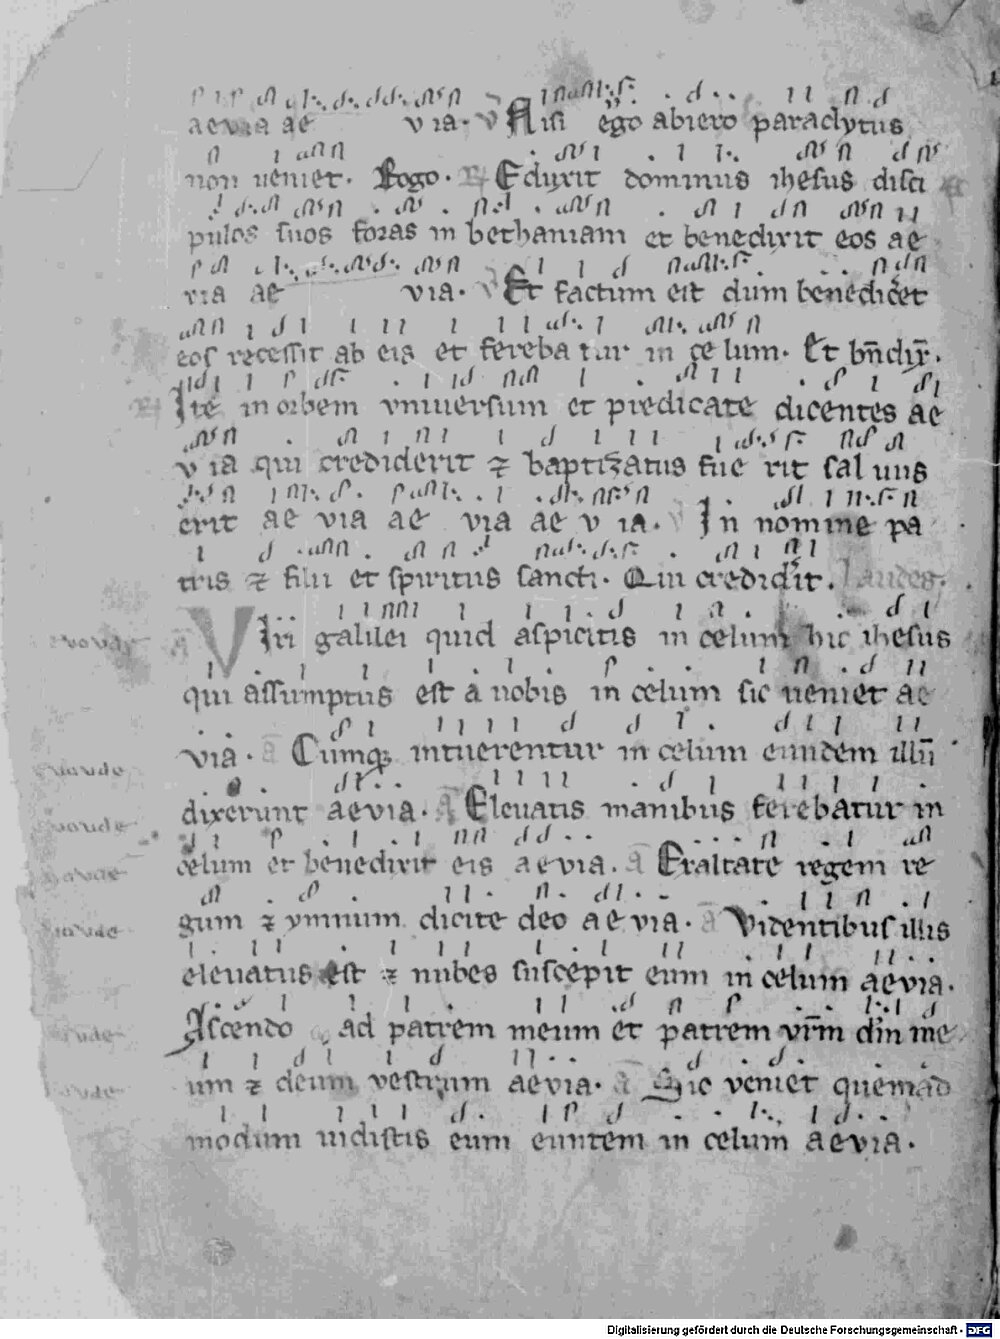 aevia ae via. V Nisi ego abiero paraclytus
non ueniet. Rogo. R Eduxit dominus ihesus disci
pulos suos foras in bethaniam et benedixit eos ae
via ae via. V Et factum est dum benedic̄et
eos recessit ab eis et ferebatur in celum. Et bn̄dix̄.
R Ite in orbem vniuersum et predicate dicentes ae
via qui crediderit ⁊ baptizatus fue rit saluus
erit ae via ae via ae v ia. V In nomine pa
tris ⁊ filii et spiritus sancti. Qui credid̄it. Laudes.
a Viri galilei quid aspicitis in celum hic ihesus
qui assumptus est a uobis in celum sic ueniet ae
via. a Cumq; intuerentur in celum euntem illū
dixerunt aevia. a Eleuatis manibus ferebatur in
celum et benedixit eis aevia. a Exaltate regem re
gum ⁊ ymnum dicite deo aevia. a Videntibus illis
eleuatus est ⁊ nubes suscepit eum in celum aevia.
Ascendo ad patrem meum et patrem vr̄m dm̄ me
um ⁊ deum vestrum aevia. a Sic veniet quemad
modum uidistis eum euntem in celum aevia.
Digitalisierung gefördert durch die Deutsche Forschungsgemeinschaft - DFG